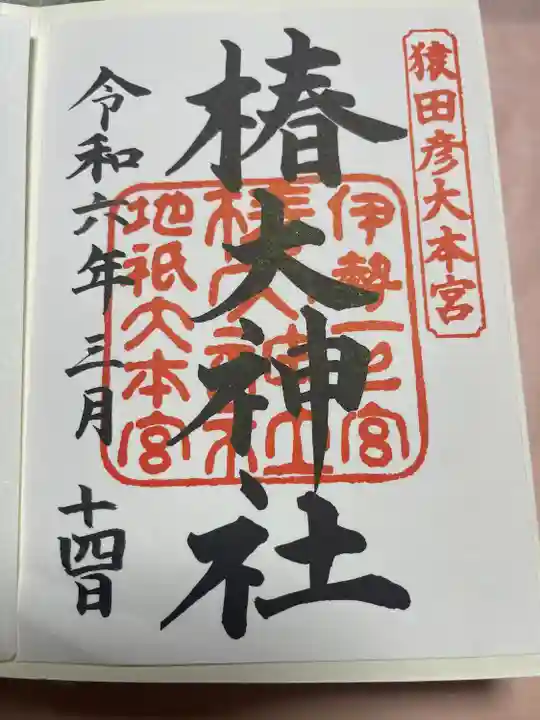 猿田彦大本宮
椿大神社
伊勢一之宮
椿大神社
地祇大本宮
令和六年三月十四日